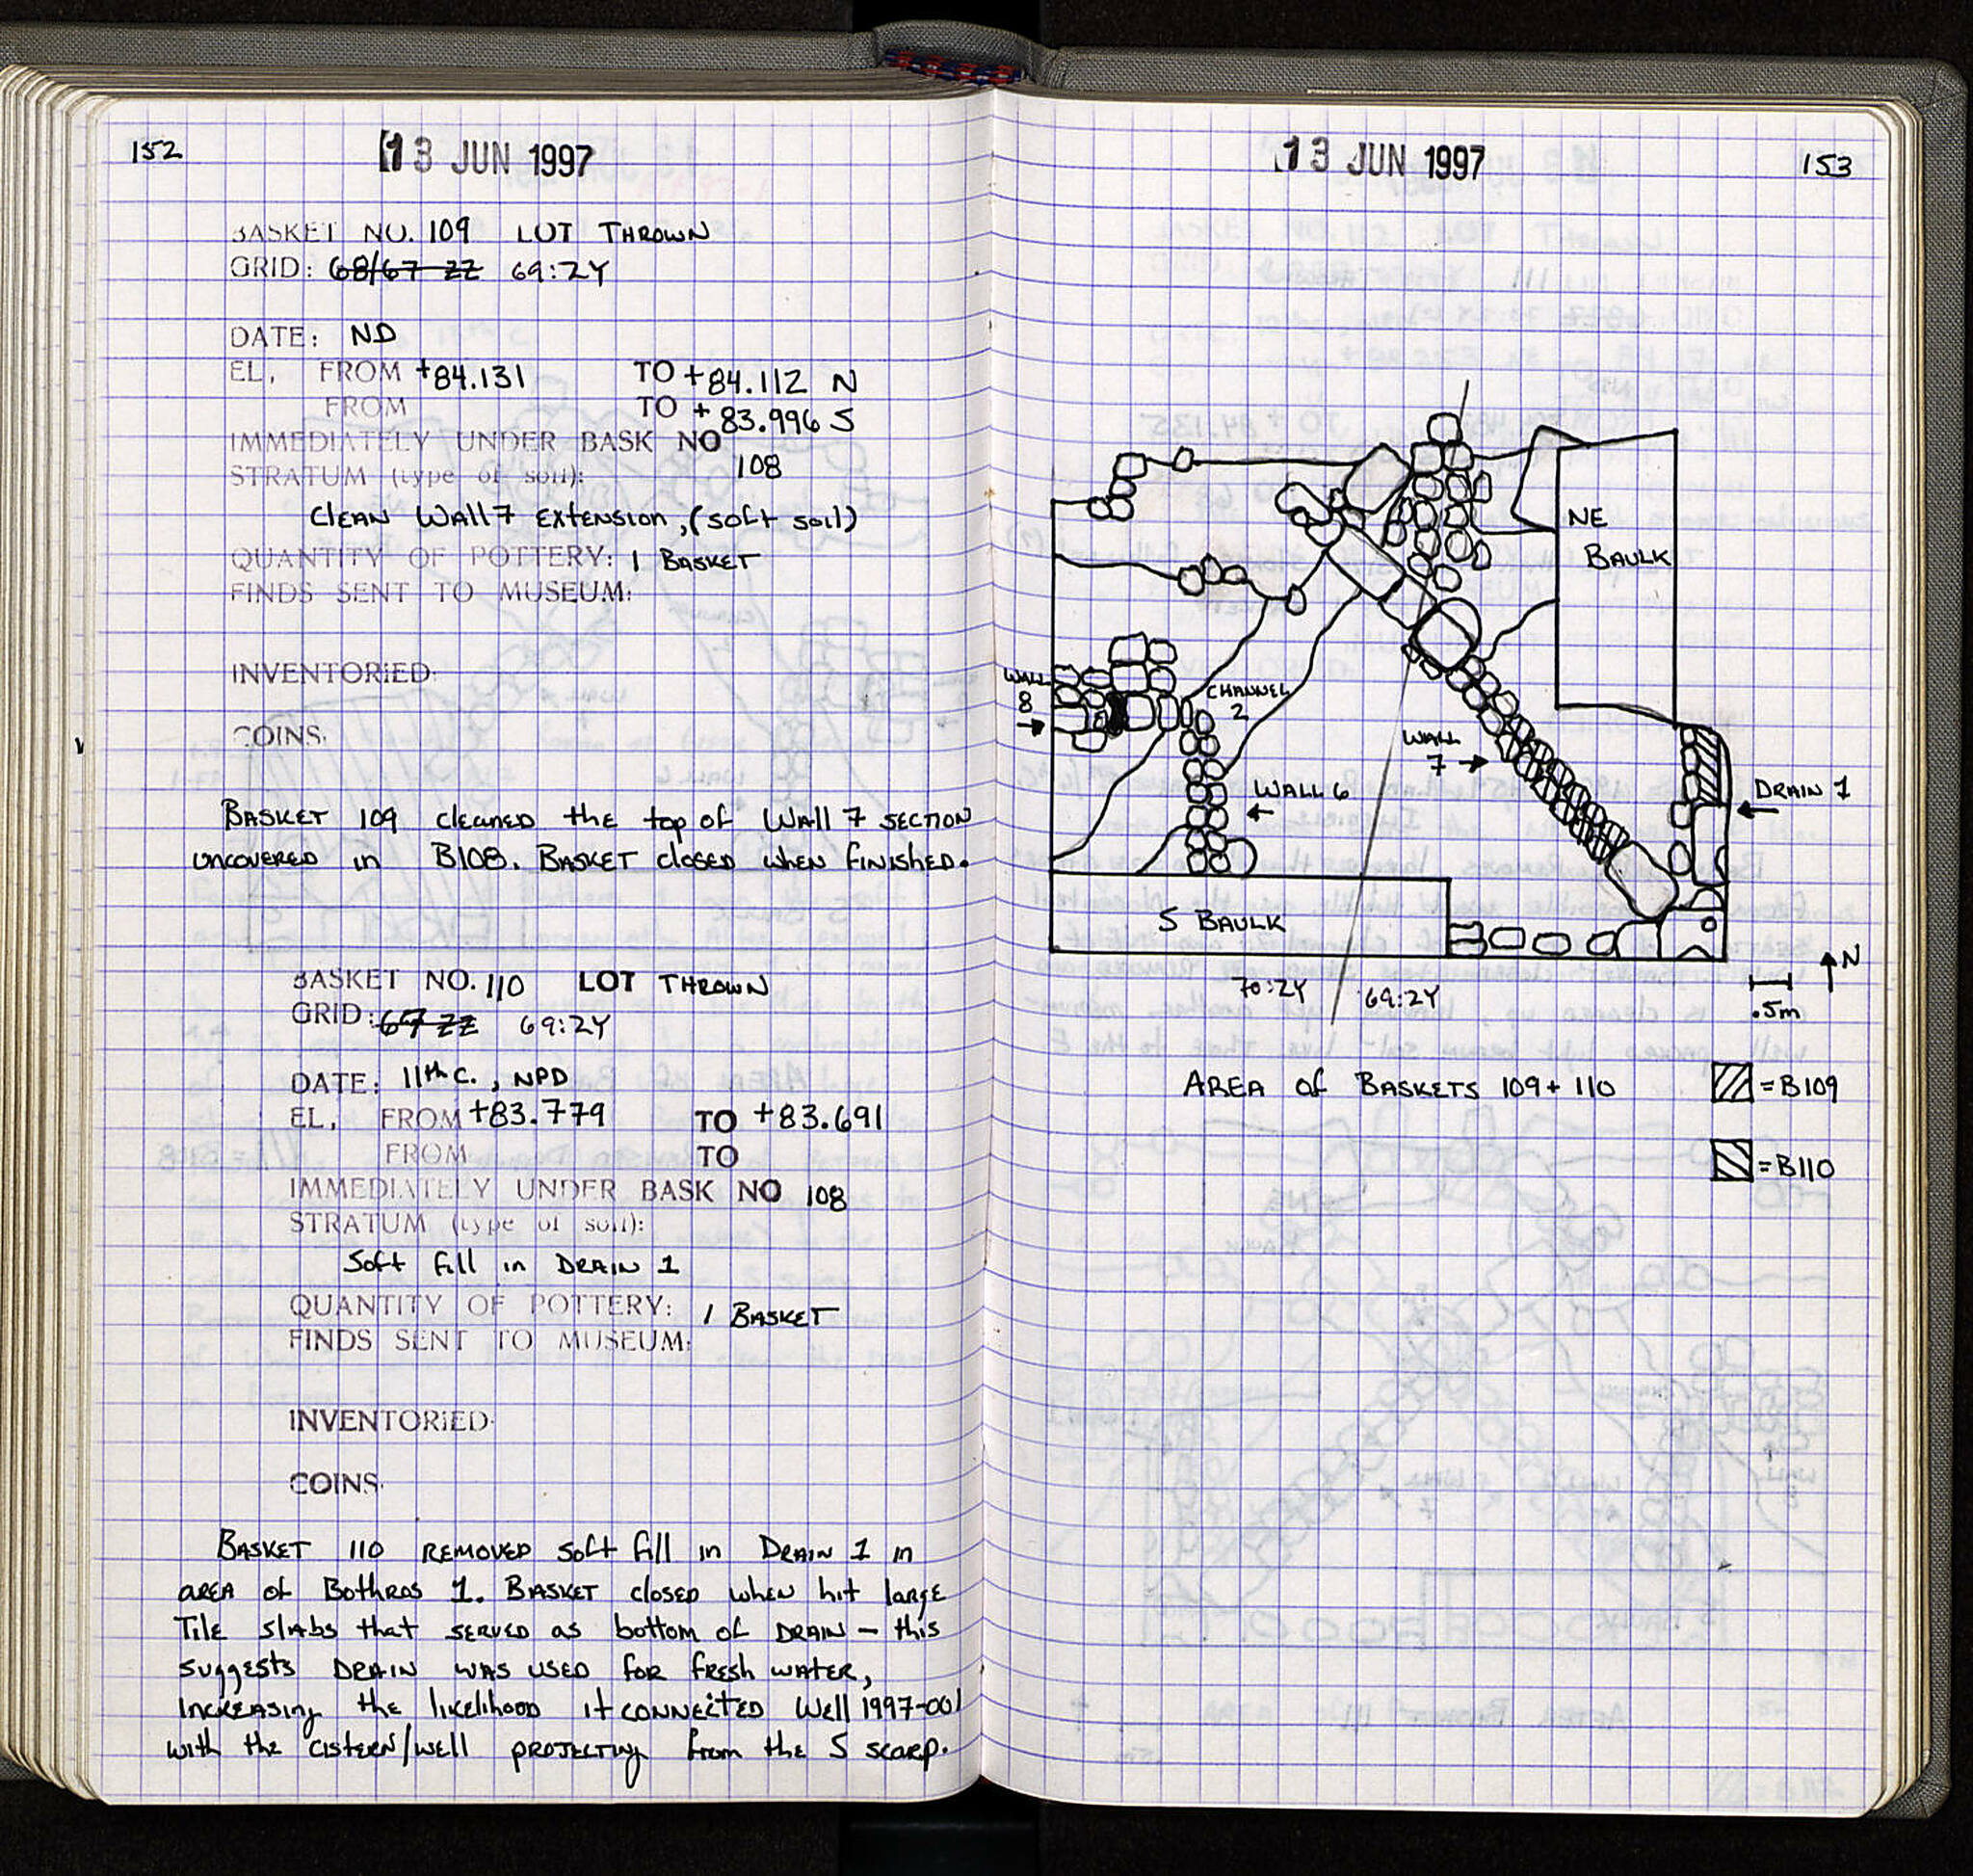 152
13 JUN 1997
BASKET NO. 109 LOT THROWN
GRID: 68/67 ZZ 69:ZY
DATE: ND
EL, FROM +84.131 TO +84.112 N
FROM TO +83.996 S
IMMEDIATELY UNDER BASK NO 108
STRATUM (type of soil):
Clean Wall 7 Extension, (soft soil)
QUANTITY OF POTTERY: 1 BASKET
FINDS SENT TO MUSEUM:
INVENTORIED:
COINS.
BASKET 109 cleaned the top of Wall 7 section
uncovered in B108. BASKET closed when finished.
BASKET NO. 110 LOT THROWN
GRID: 67 ZZ 69:ZY
DATE: 11th C., NPD
EL, FROM +83.779 TO +83.691
FROM TO
IMMEDIATELY UNDER BASK NO 108
STRATUM (type of soil):
Soft fill in DRAIN 1
QUANTITY OF POTTERY: 1 BASKET
FINDS SENT TO MUSEUM:
INVENTORIED
COINS.
BASKET 110 REMOVED soft fill in DRAIN 1 in
area of Bothros 1. BASKET closed when hit large
Tile slabs that served as bottom of DRAIN — this
suggests DRAIN was used for fresh water,
increasing the likelihood it connected Well 1997-001
with the cistern/well projecting from the S scarp.
13 JUN 1997
153
NE
BAULK
WALL
8
CHANNEL
2
WALL
7
WALL 6
DRAIN 1
S BAULK
N
70:ZY 69:ZY
.5m
AREA of BASKETS 109 + 110
= B109
= B110